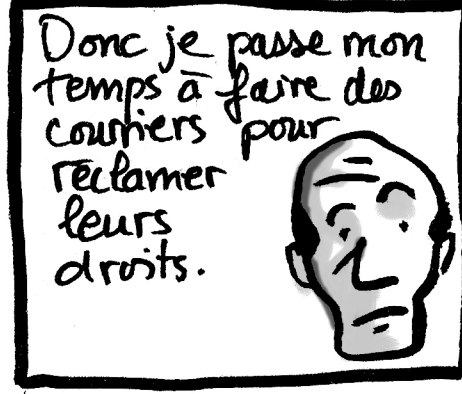 Donc je passe mon
temps à faire des
courriers pour
réclamer
leurs
droits.